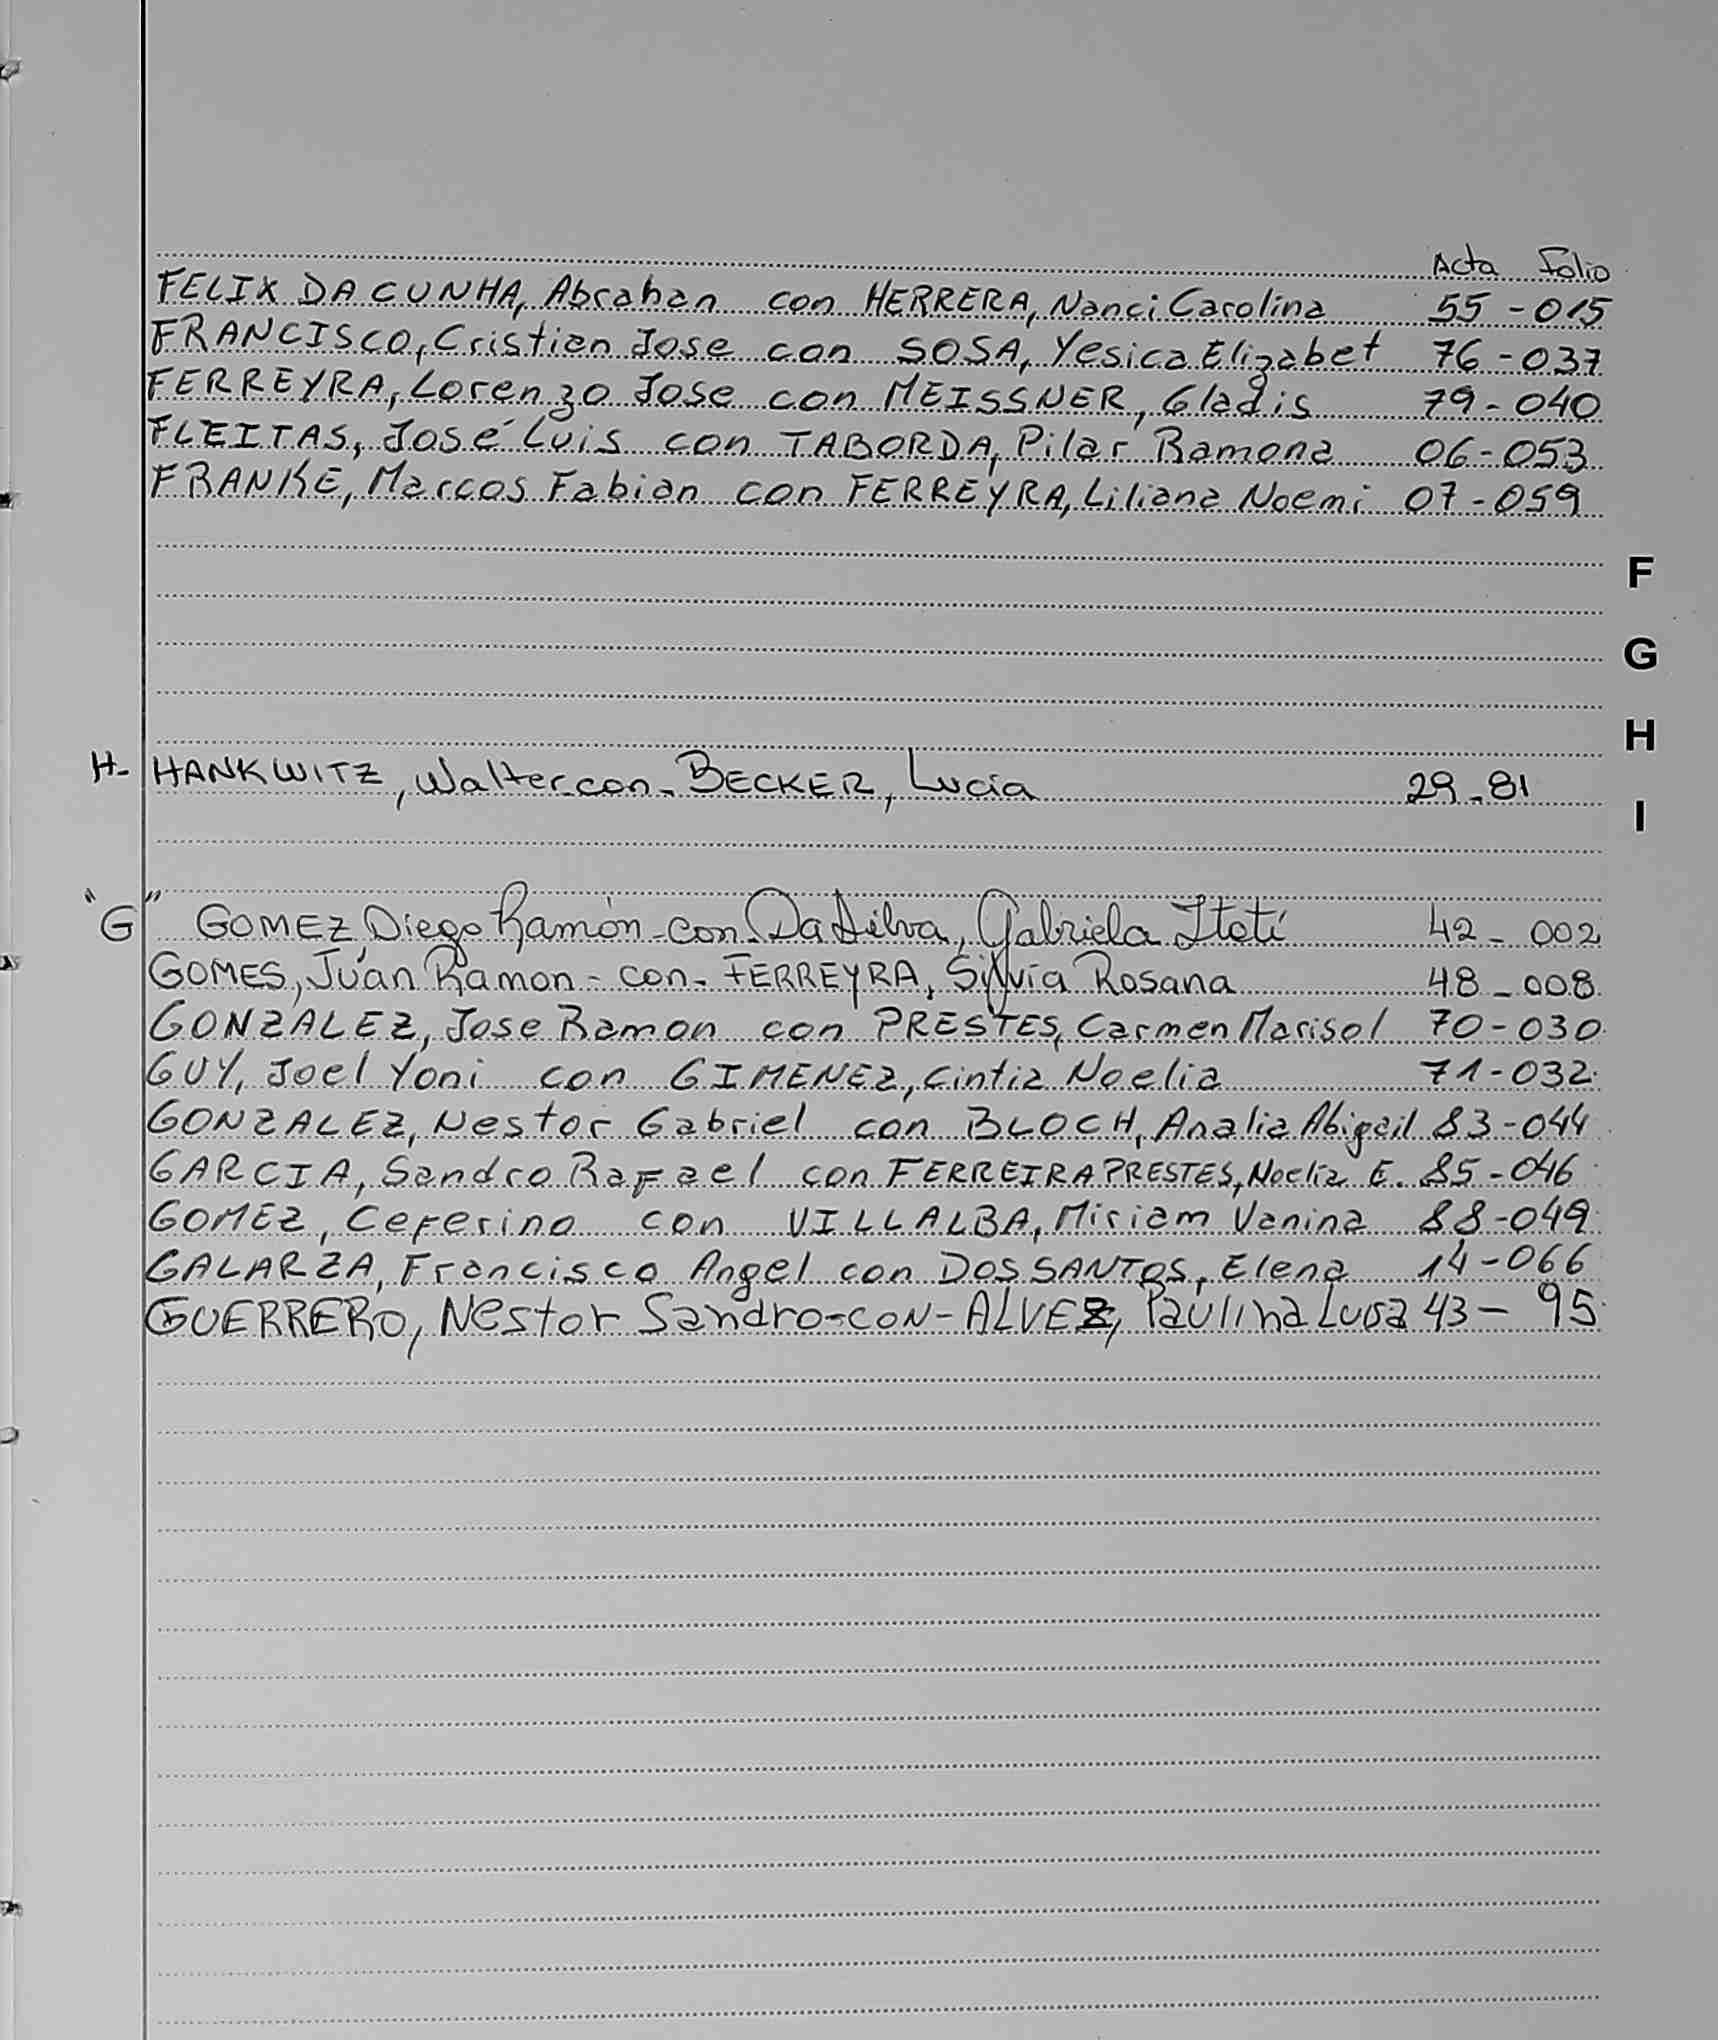 Acta Folio
FELIX DA CUNHA, Abrahan con HERRERA, Nanci Carolina 55-015
FRANCISCO, Cristian Jose con SOSA, Yesica Elizabet 76-037
FERREYRA, Lorenzo Jose con MEISSNER, Gladis 79-040
FLEITAS, José Luis con TABORDA, Pilar Ramona 06-053
FRANKE, Marcos Fabian con FERREYRA, Liliana Noemi 07-059
F
G
H
H- HANKWITZ, Walter-con-BECKER, Lucía 29-81
I
"G" GOMEZ Diego Ramón-con-Da Silva, Gabriela Itatí 42-002
GOMES, Juan Ramon-con-FERREYRA, Silvia Rosana 48-008
GONZALEZ, Jose Ramon con PRESTES, Carmen Marisol 70-030
GUY, Joel Yoni con GIMENEZ, Cintia Noelia 71-032
GONZALEZ, Nestor Gabriel con BLOCH, Analia Abigail 83-044
GARCIA, Sandro Rafael con FERREIRA PRESTES, Noelia E. 85-046
GOMEZ, Ceferino con VILLALBA, Miriam Vanina 88-049
GALARZA, Francisco Angel con DOS SANTOS, Elena 14-066
GUERRERO, Nestor Sandro-con-ALVEZ, Paulina Luisa 43-95